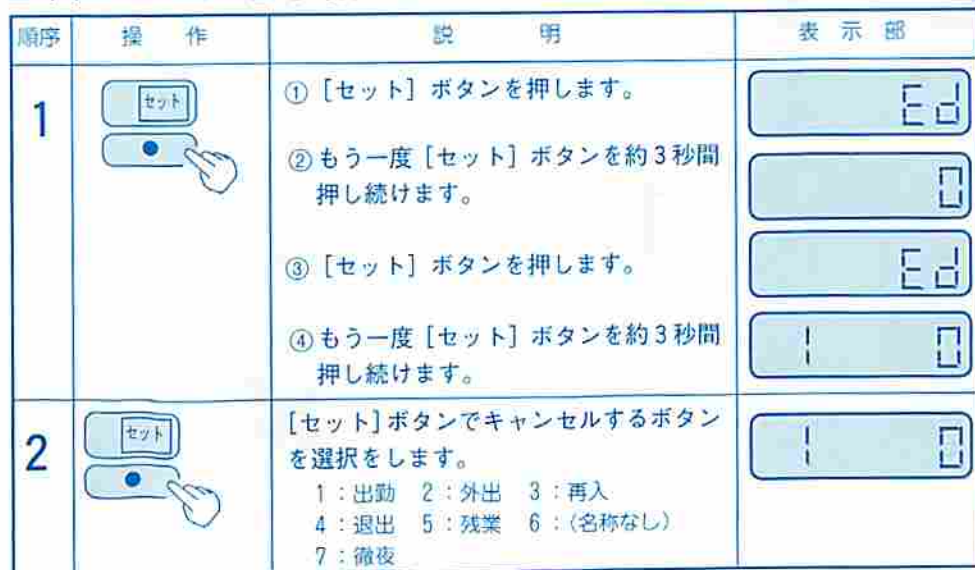 順序 操作 説明 表示部
1
セット
① [セット] ボタンを押します。
Ed
② もう一度 [セット] ボタンを約3秒間
押し続けます。
0
③ [セット] ボタンを押します。
Ed
④ もう一度 [セット] ボタンを約3秒間
押し続けます。
1 0
2
セット
[セット]ボタンでキャンセルするボタン
を選択をします。
1:出勤 2:外出 3:再入
4:退出 5:残業 6:(名称なし)
7:徹夜
1 0